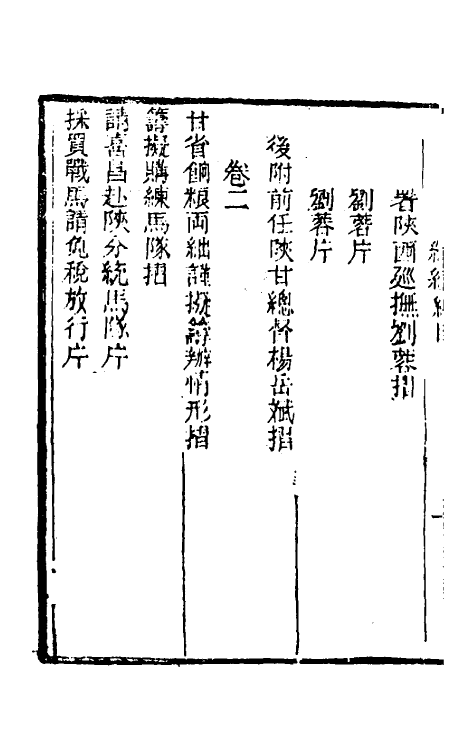 署陝西廵撫劉蓉摺
劉蓉片
劉蓉片
後附前任陝甘總督楊岳斌摺
卷二
甘省餉糧両絀謹擬籌辦情形摺
籌擬購練馬隊摺
請喜昌赴陝分統馬隊片
採買戰馬請免稅放行片